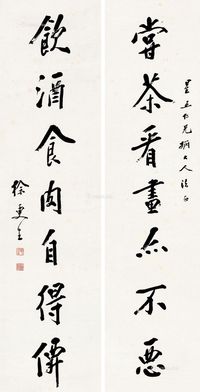 星五仁兄姻大人法正
嘗茶看畫亦不惡
飲酒食肉自得僊
徐